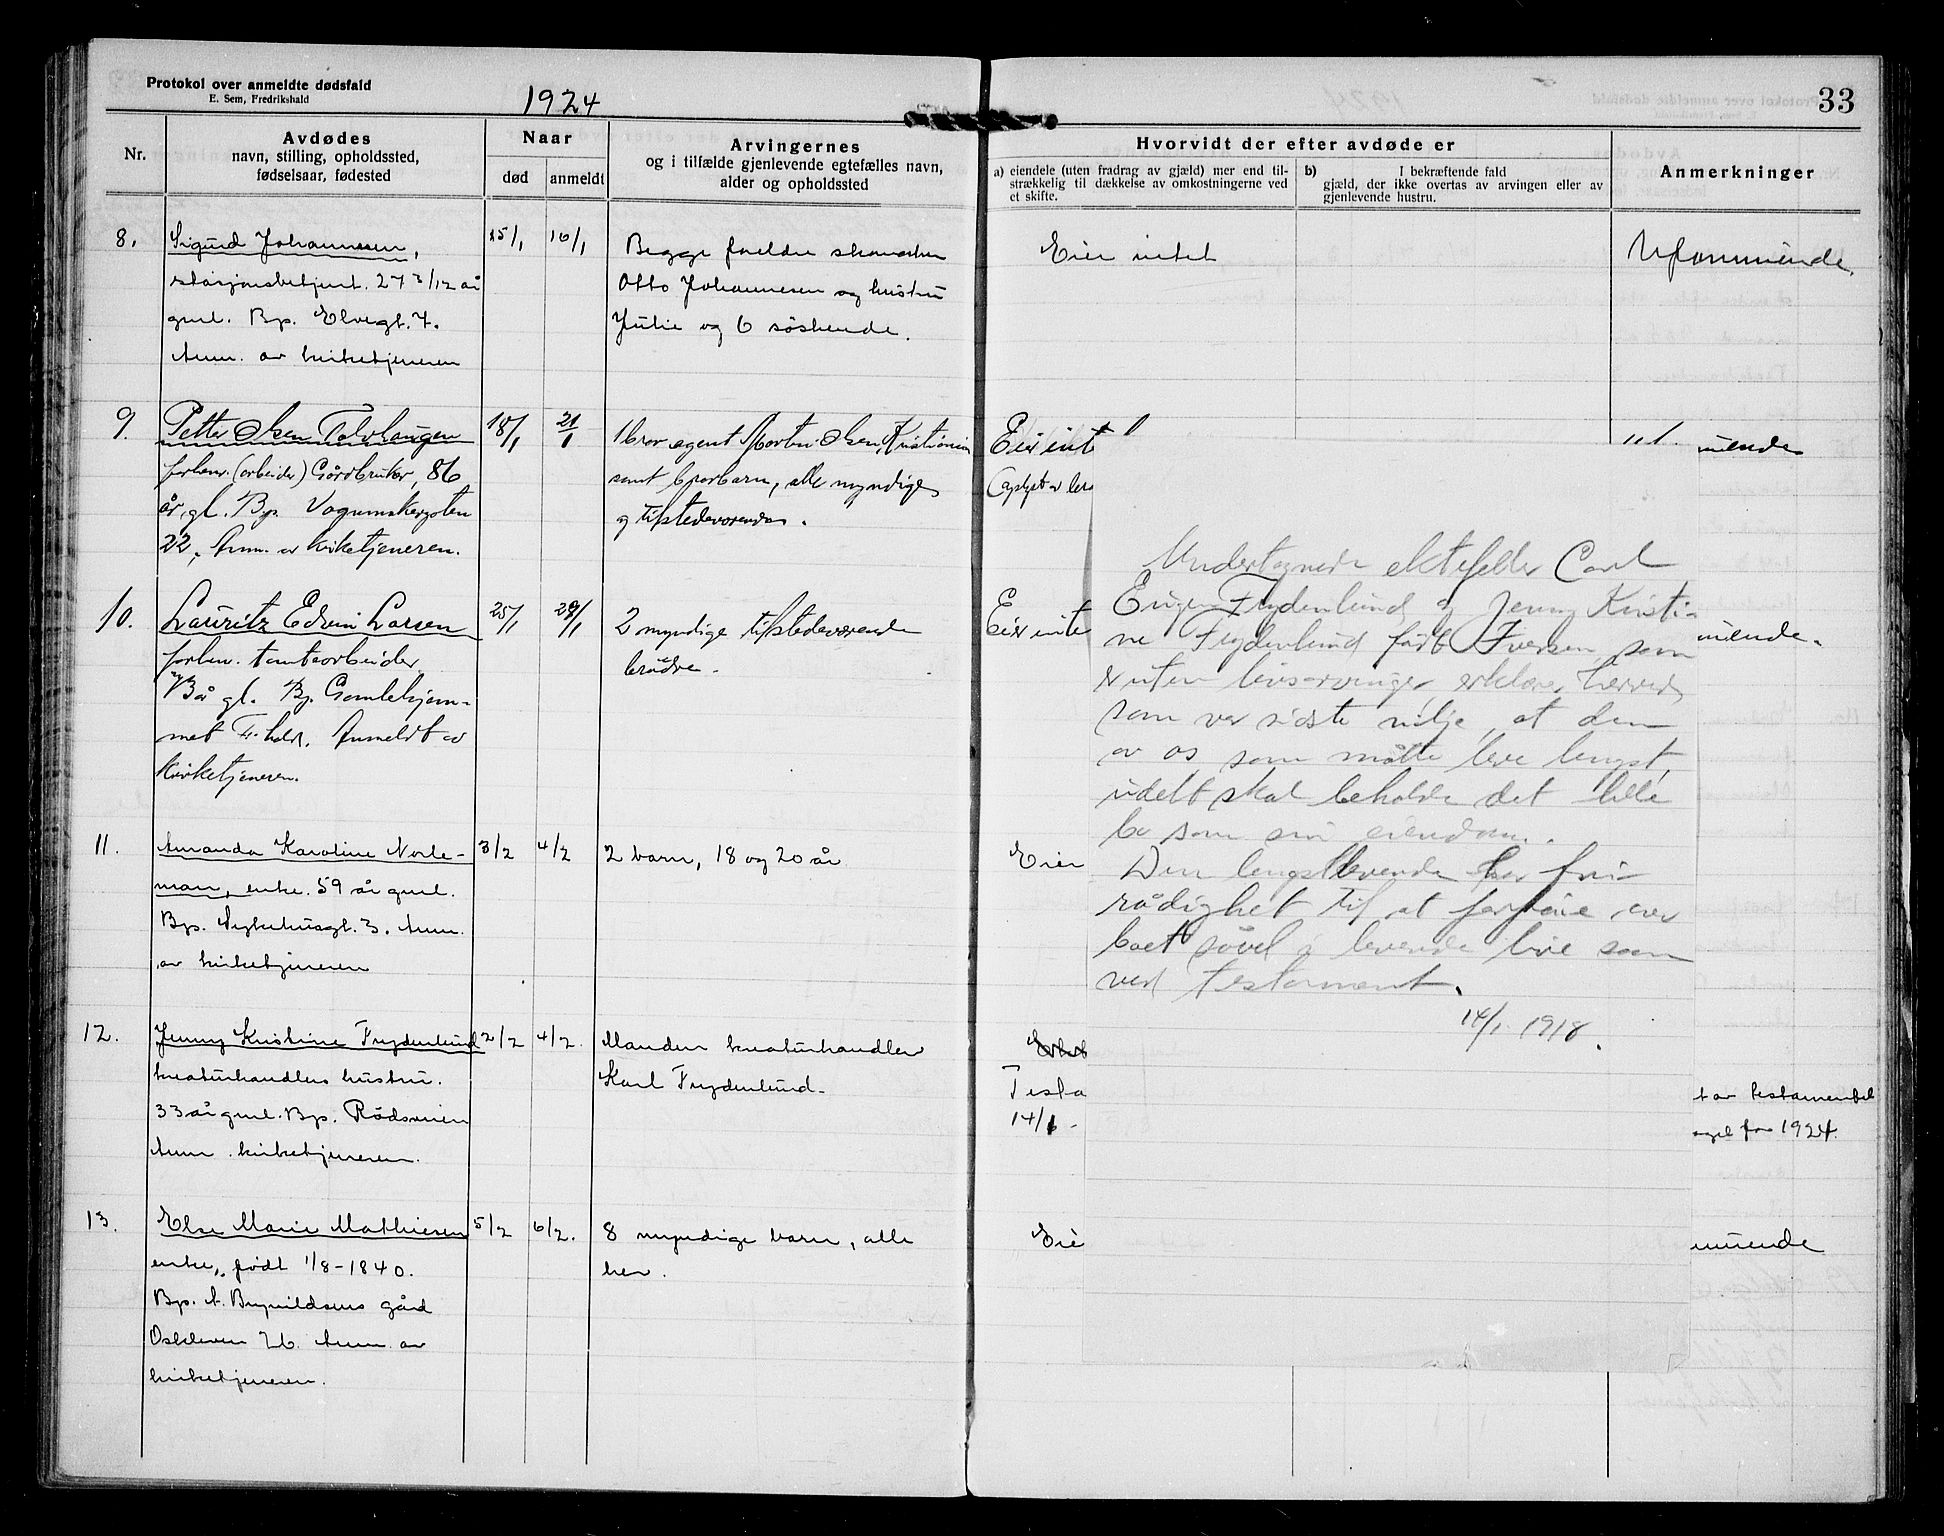 Protokol over anmeldte dødsfald
E. Sem, Fredrikshald
1924
33
Nr.
Avdødes
navn, stilling, opholdssted,
fødselsaar, fødested
Naar
død
anmeldt
Arvingernes
og i tilfælde gjenlevende egtefælles navn,
alder og opholdssted
Hvorvidt der efter avdøde er
a) eiendele (uten fradrag av gjæld) mer end til-
strækkelig til dækkelse av omkostningerne ved
et skifte.
b) I bekræftende fald
gjæld, der ikke overtas av arvingen eller av
gjenlevende hustru.
Anmerkninger
8.
Sigurd Johannesen,
stasjonsbetjent. 27 3/12 år
gml. Bp. Elvegt. 7.
Anm. av kirketjeneren
15/1
16/1
Begge foreldre
Otto Johannesen og hustru
Julie og 6 søskende.
Eier intet
Uformuende.
9.
Petter Olsen Tolvhaugen
forhenv. (arbeider) Gårdbruker, 86
år gl. Bp. Vognmakergaten
22, Anm. av kirketjeneren.
18/1
21/1
1 bror agent Morten Olsen, Kristiania
samt brorbarn, alle myndige
og tilstedeværende.
Eier int
muende
10.
Lauritz Edvin Larsen
forhen. tomtearbeider
år gl. Bp. Gamlehjem-
met F.hald. Anmeldt av
Kirketjeneren.
25/1
29/1
2 myndige tilstedeværende
brødre.
Eier inte
muende.
11.
Amanda Karoline Norle-
man, enke. 59 år gml.
Bp. Sykehusgt. 3. Anm.
av kirketjeneren
3/2
4/2
2 barn, 18 og 20 år
Eier
12.
Jenny Kristine Frydenlund
kreaturhandlers hustru.
33 år gml. Bp. Rødsveien
Anm. kirketjeneren.
2/2
4/2.
Manden kreaturhandler
Karl Frydenlund.
Testa
14/1 -
t av testamentet
for 1924.
13.
Else Marie Mathiesen
enke, født 1/8-1840.
Bp. A. Brynildsens gård
Oskleven 26. Anm. av
kirketjeneren.
5/2
6/2.
8 myndige barn, alle
her.
Eie
muende
Undertegnede ektefelder Carl
Eugen Frydenlund og Jenny Kristi-
ne Frydenlund født Iversen som
er uten livsarvinger, erklærer herved
som vor sidste vilje, at den
av os som måtte leve lengst,
udelt skal beholde det hele
bo som sin eiendom.
Den lengstlevende har fri
rådighet til at forføie over
boet såvel i levende live som
ved testament.
14/1 1918.